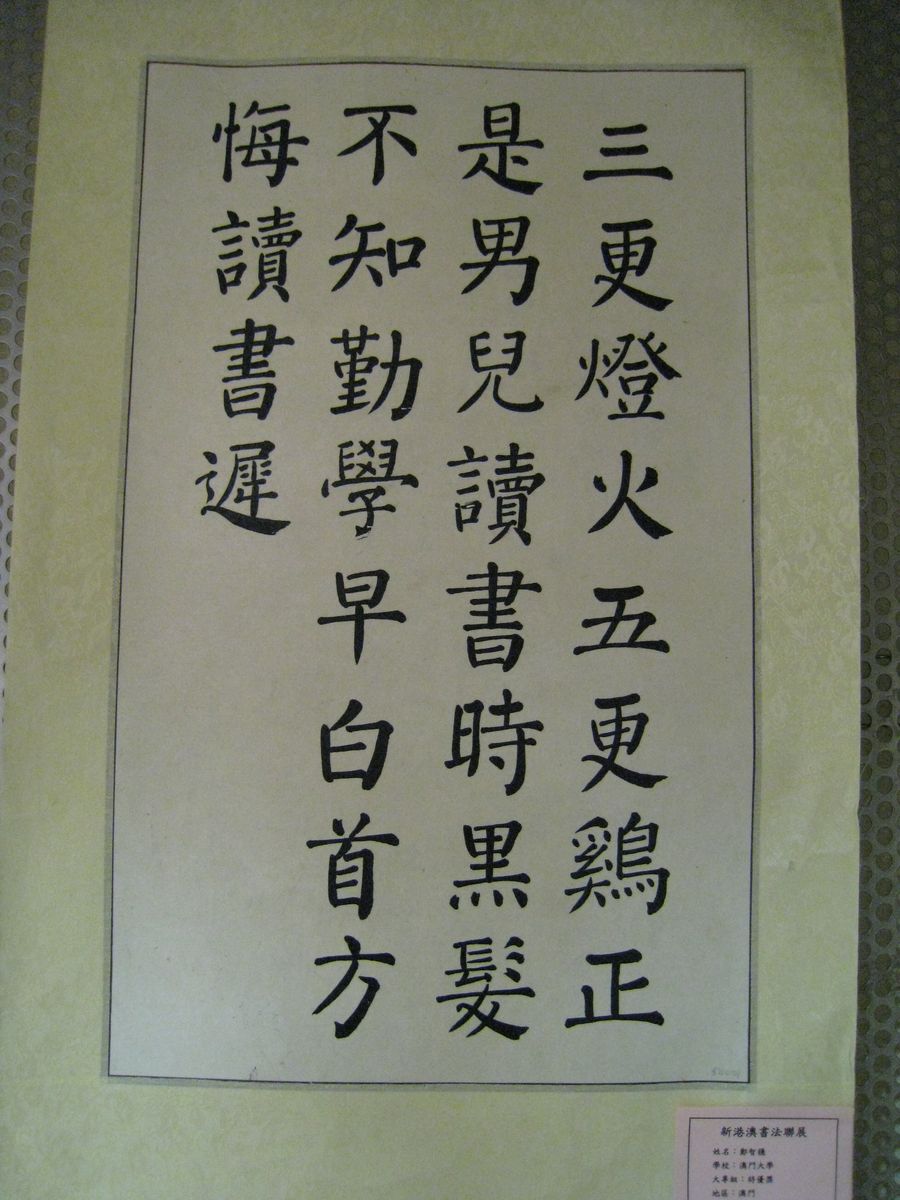 三更燈火五更鷄正
是男兒讀書時黑髮
不知勤學早白首方
悔讀書遲
新港澳書法聯展
學校：澳門大學
大專組：特優獎
地區：澳門